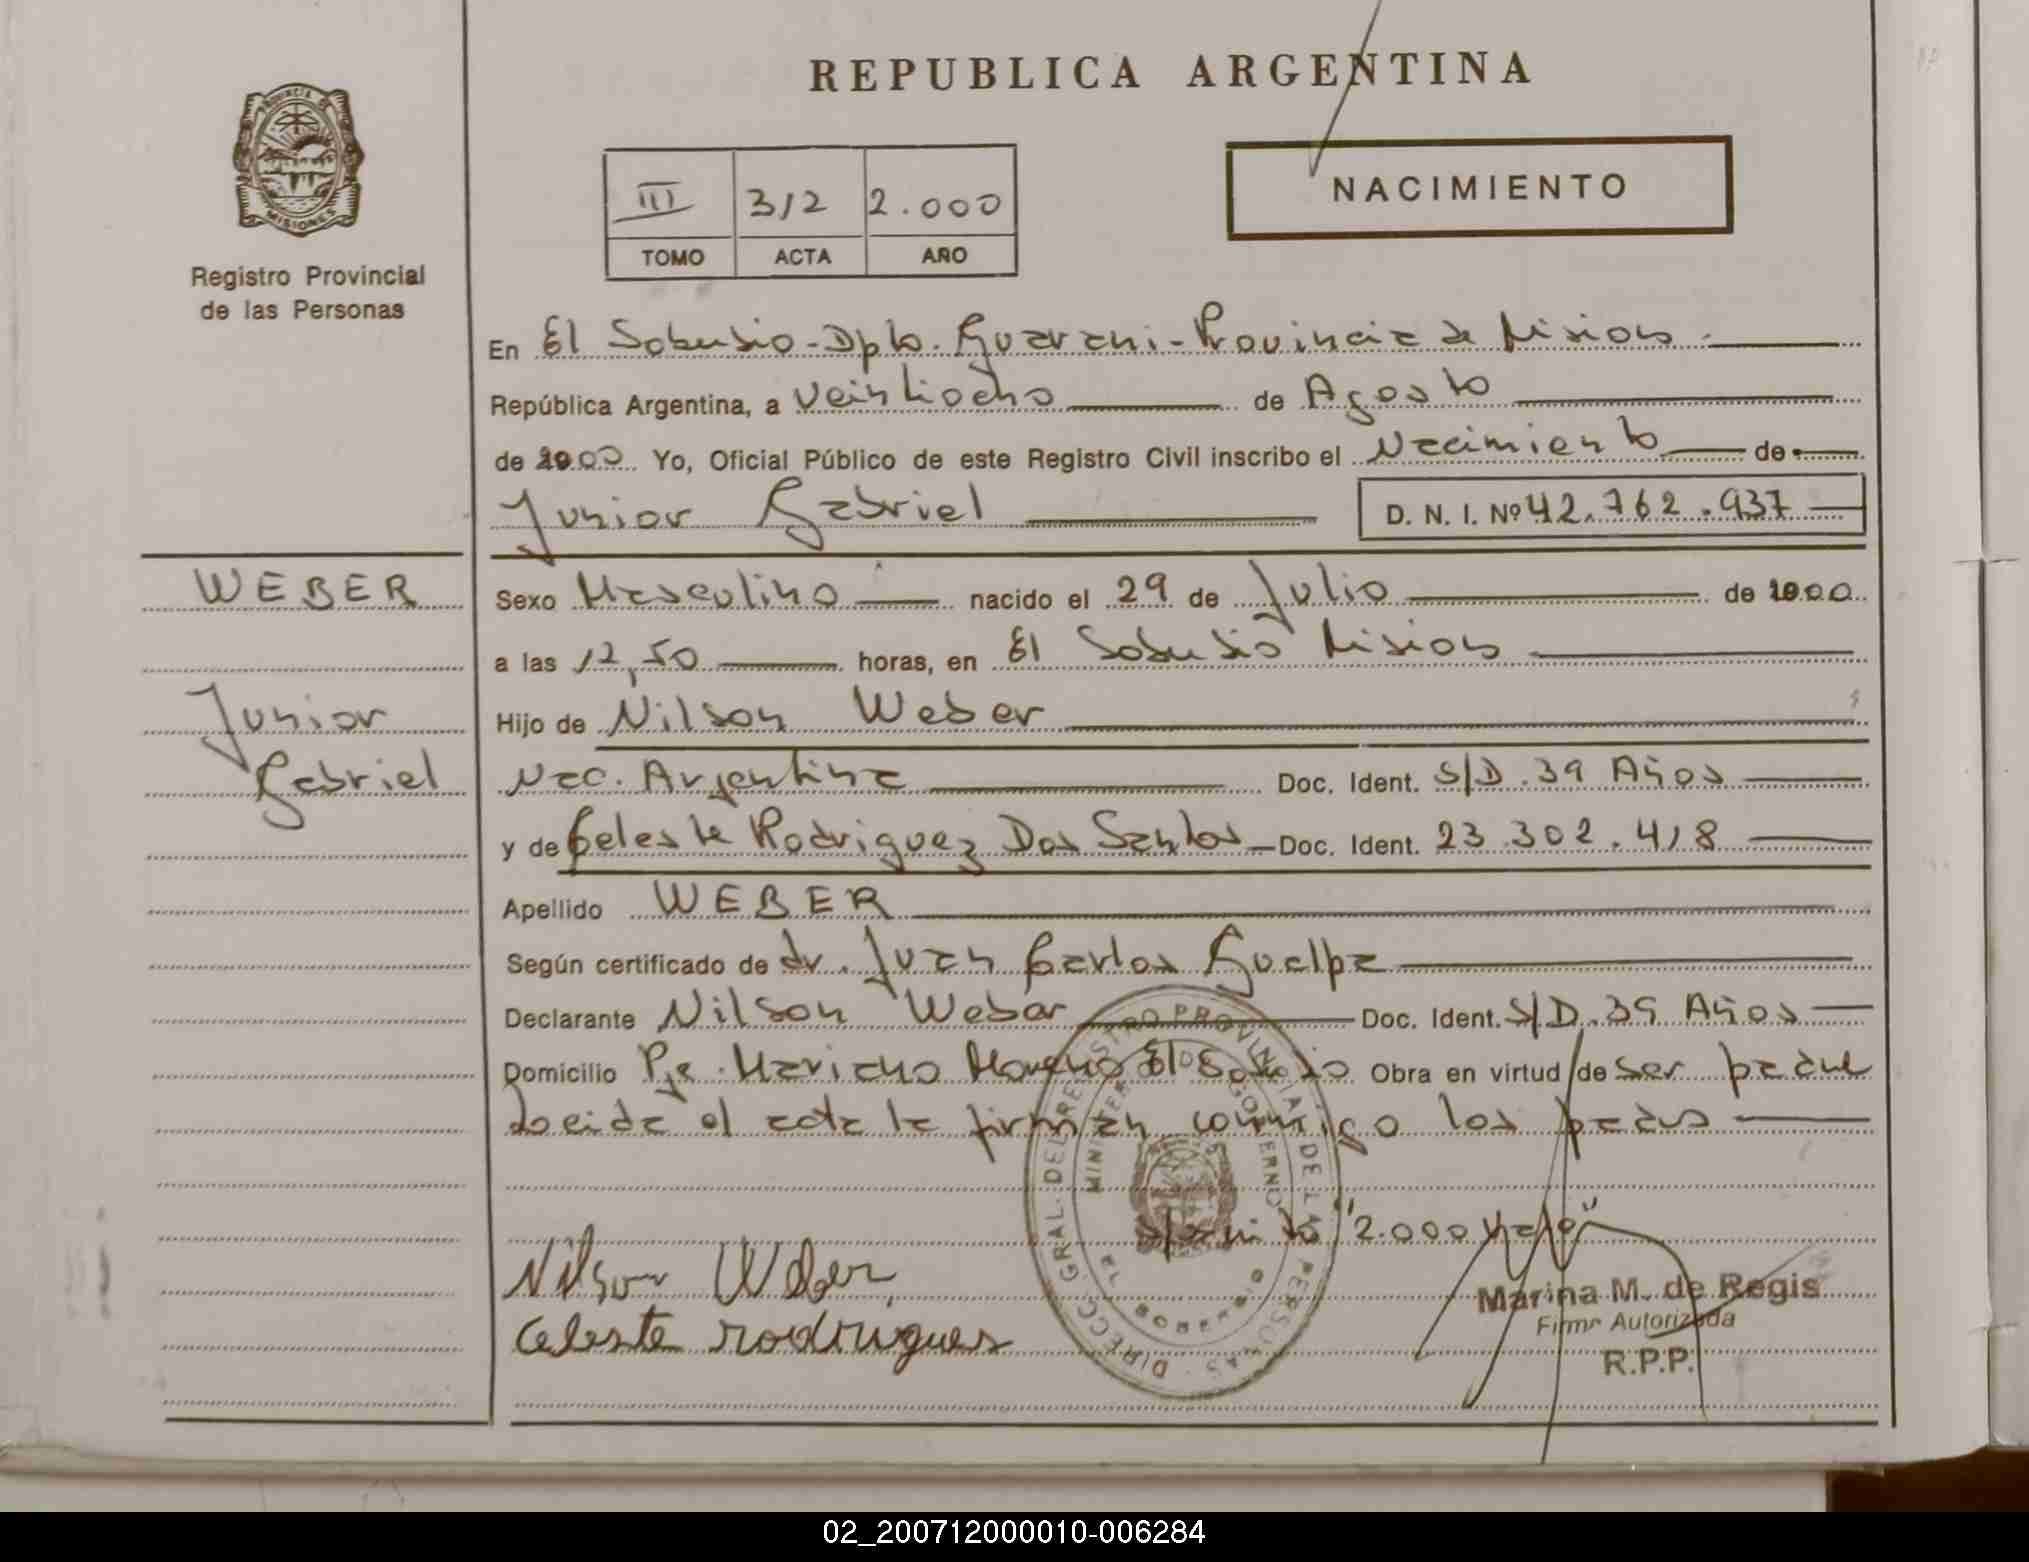 REPUBLICA ARGENTINA
PROVINCIA DE
MISIONES
Registro Provincial
de las Personas
III 312 2.000
TOMO ACTA AÑO
NACIMIENTO
En El Soberbio - Dpto. Guarani - Provincia de Misiones
República Argentina, a veintiocho de Agosto
de 2000 Yo, Oficial Público de este Registro Civil inscribo el Nacimiento de
Junior Gabriel D. N. I. Nº 42.762.937
WEBER
Junior
Gabriel
Sexo Masculino nacido el 29 de Julio de 2000
a las 12,50 horas, en El Soberbio Misiones
Hijo de Nilson Weber
Nac. Argentina Doc. Ident. S/D. 39 Años
y de Celeste Rodriguez Dos Santos Doc. Ident. 23.302.418
Apellido WEBER
Según certificado de dr. Juan Carlos Gualpa
Declarante Nilson Weber Doc. Ident. S/D. 39 Años
Domicilio Pje. Mariano Moreno El Soberbio Obra en virtud de ser padre
Leida el acta la firman conmigo los padres
"2.000 Vale"
Nilson Weber
Celeste rodrigues
DIRECC. GRAL. DEL REGISTRO PROVINCIAL DE LAS PERSONAS
MINISTERIO DE GOBIERNO
SOBERBIO
Marina M. de Regis
Firma Autorizada
R.P.P.
02_200712000010-006284